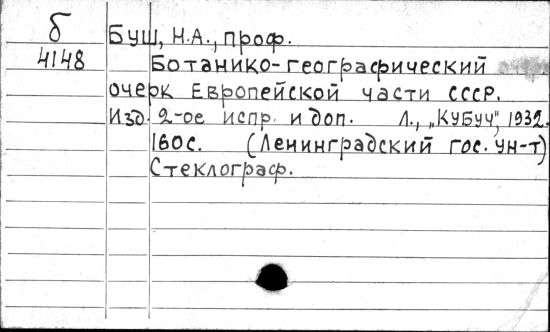 б
4148
Буш, Н.А., проф.
Ботанико-географический
очерк Европейской части СССР.
Изд. 2-ое испр. и доп. Л., „Кубуч", 1932.
160с. (Ленинградский гос. ун-т)
Стеклограф.